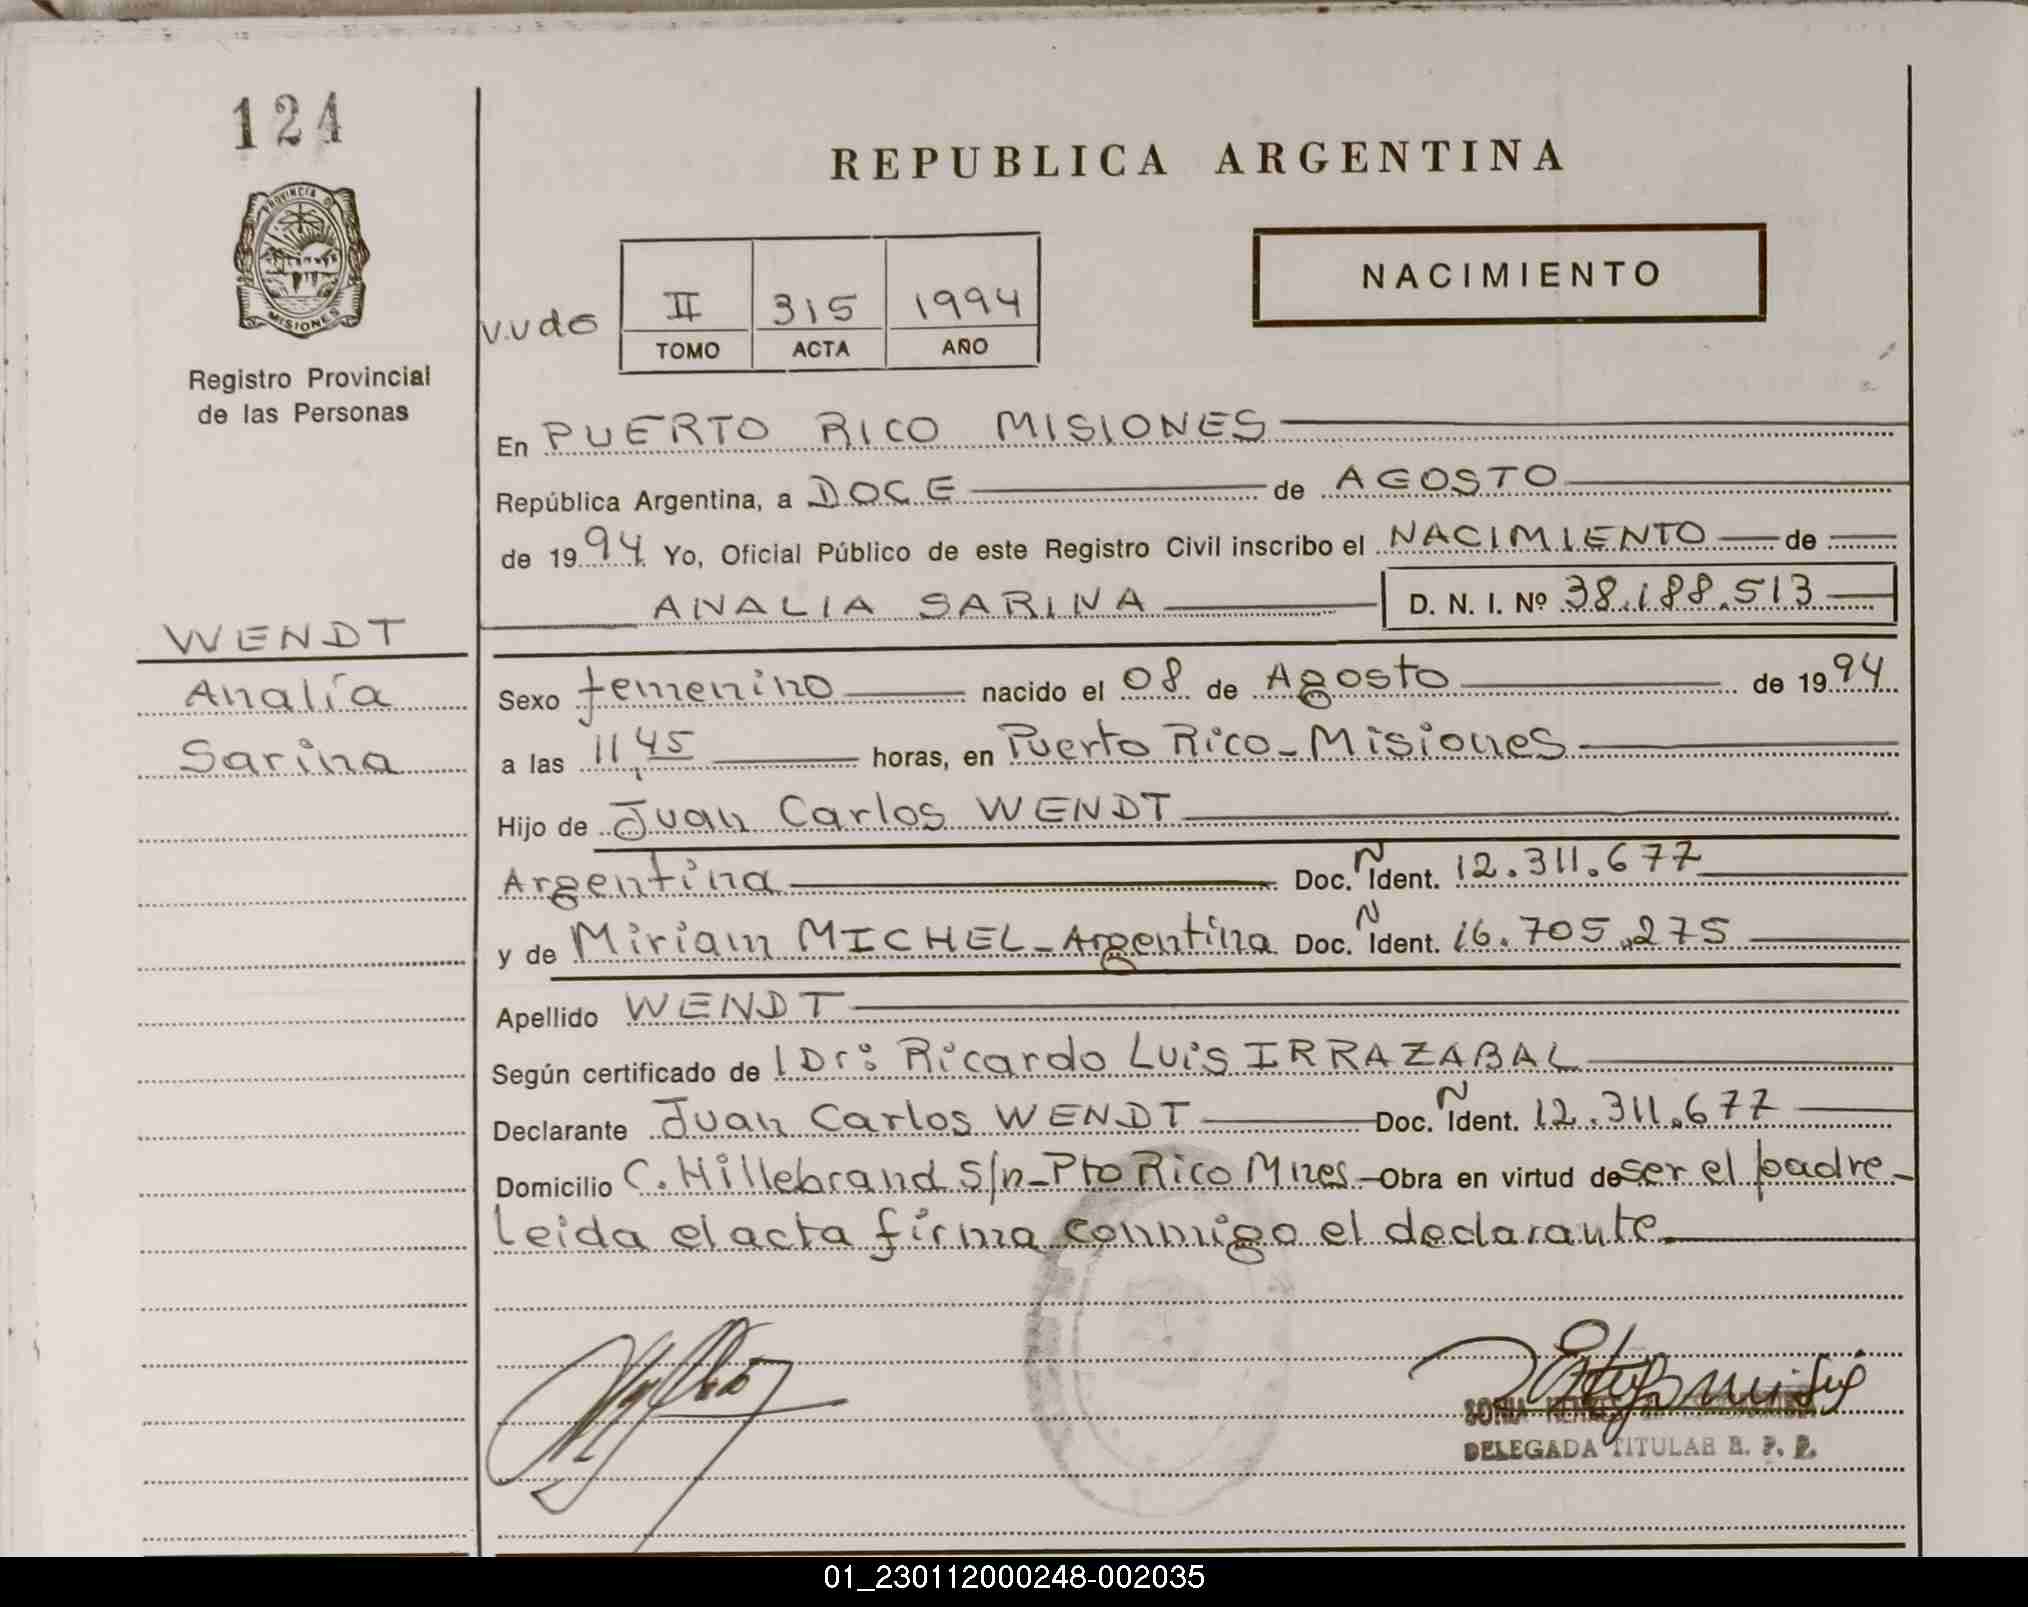 124
PROVINCIA DE
MISIONES
Registro Provincial
de las Personas
WENDT
Analía
Sarina
REPUBLICA ARGENTINA
NACIMIENTO
II 315 1994
TOMO ACTA AÑO
En PUERTO RICO MISIONES
República Argentina, a DOCE de AGOSTO
de 1994 Yo, Oficial Público de este Registro Civil inscribo el NACIMIENTO de
ANALIA SARINA D. N. I. Nº 38.188.513
Sexo femenino nacido el 08 de Agosto de 1994
a las 11,45 horas, en Puerto Rico - Misiones
Hijo de Juan Carlos WENDT
Argentina Doc. N Ident. 12.311.677
y de Miriam MICHEL - Argentina Doc. N Ident. 16.705.275
Apellido WENDT
Según certificado de l Dr: Ricardo Luis IRRAZABAL
Declarante Juan Carlos WENDT Doc. N Ident. 12.311.677
Domicilio C. Hillebrand s/n - Pto Rico Mnes - Obra en virtud de ser el padre -
Leida el acta firma conmigo el declarante.
SONIA
DELEGADA TITULAR R. P. P.
01_230112000248-002035